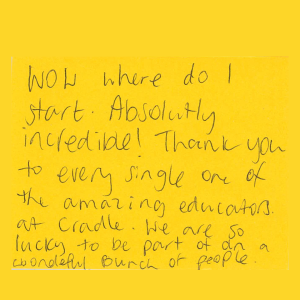 WOW where do I
start. Absolutly
incredible! Thank you
to every single one of
the amazing educators
at Cradle. We are so
lucky to be part of an a
wondeful Bunch of people.